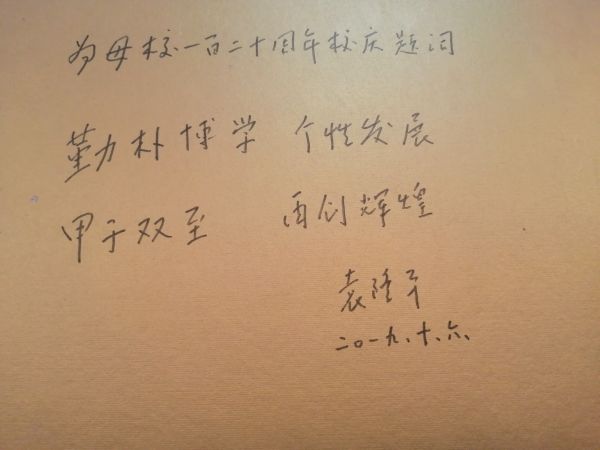 为母校一百二十周年校庆题词
勤朴博学 个性发展
甲子双至 再创辉煌
袁隆平
二〇一九、十、六、